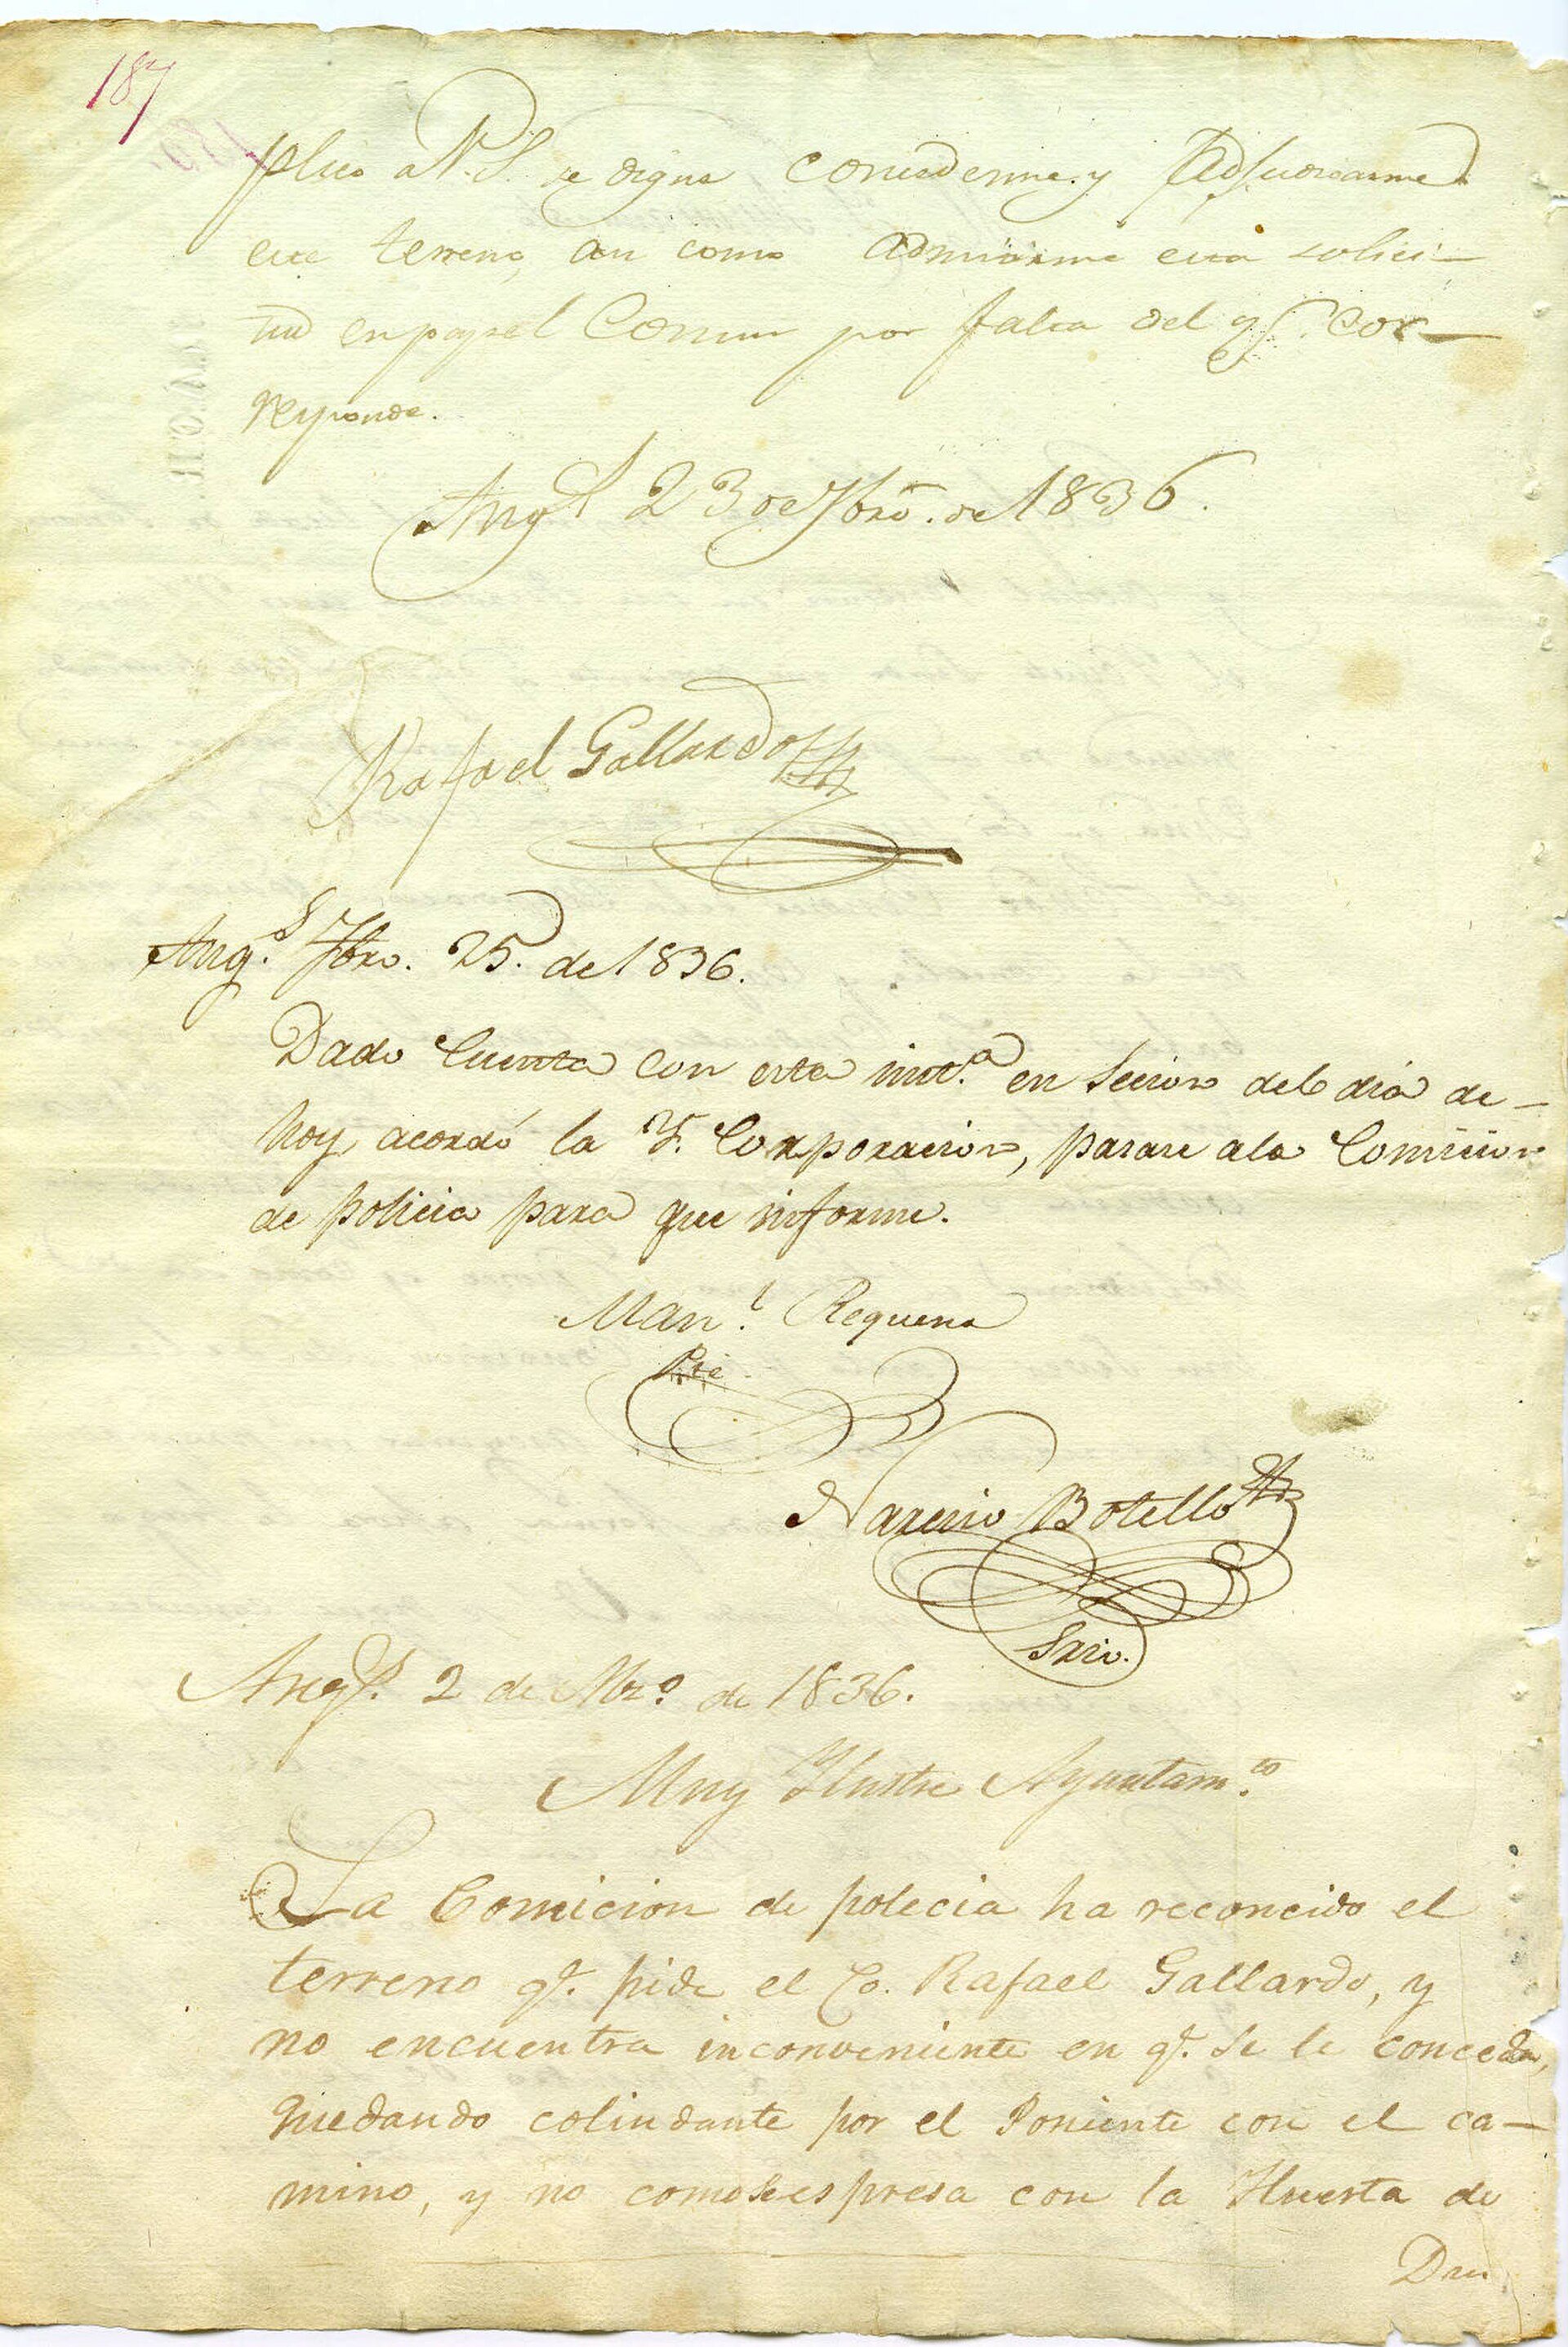 187
plico a V. S. se digne consederme y Adjudicarme
ese terreno, asi como admitirme esta solici-
tud en papel Comun por falta del qe. cor-
responde.
Angs. 23 de Fbro. de 1836.
Rafael Gallardo
Angs. Fbro. 25. de 1836.
Dado Cuenta con esta inst.a en secion del dia de-
hoy acordó la Y. Corporacion, pasase a la Comicion
de policia para que informe.
Man.l Requena
Pte.
Narciso Botello
Srio.
Angs. 2 de Mzo. de 1836.
Muy Ylustre Ayuntam.to
La Comicion de polecia ha reconcido el
terreno qe. pide el Co. Rafael Gallardo, y
no encuentra inconveniente en qe. se le conceda,
quedando colindante por el Poniente con el ca-
mino, y no como se espresa con la Huerta de
Dn